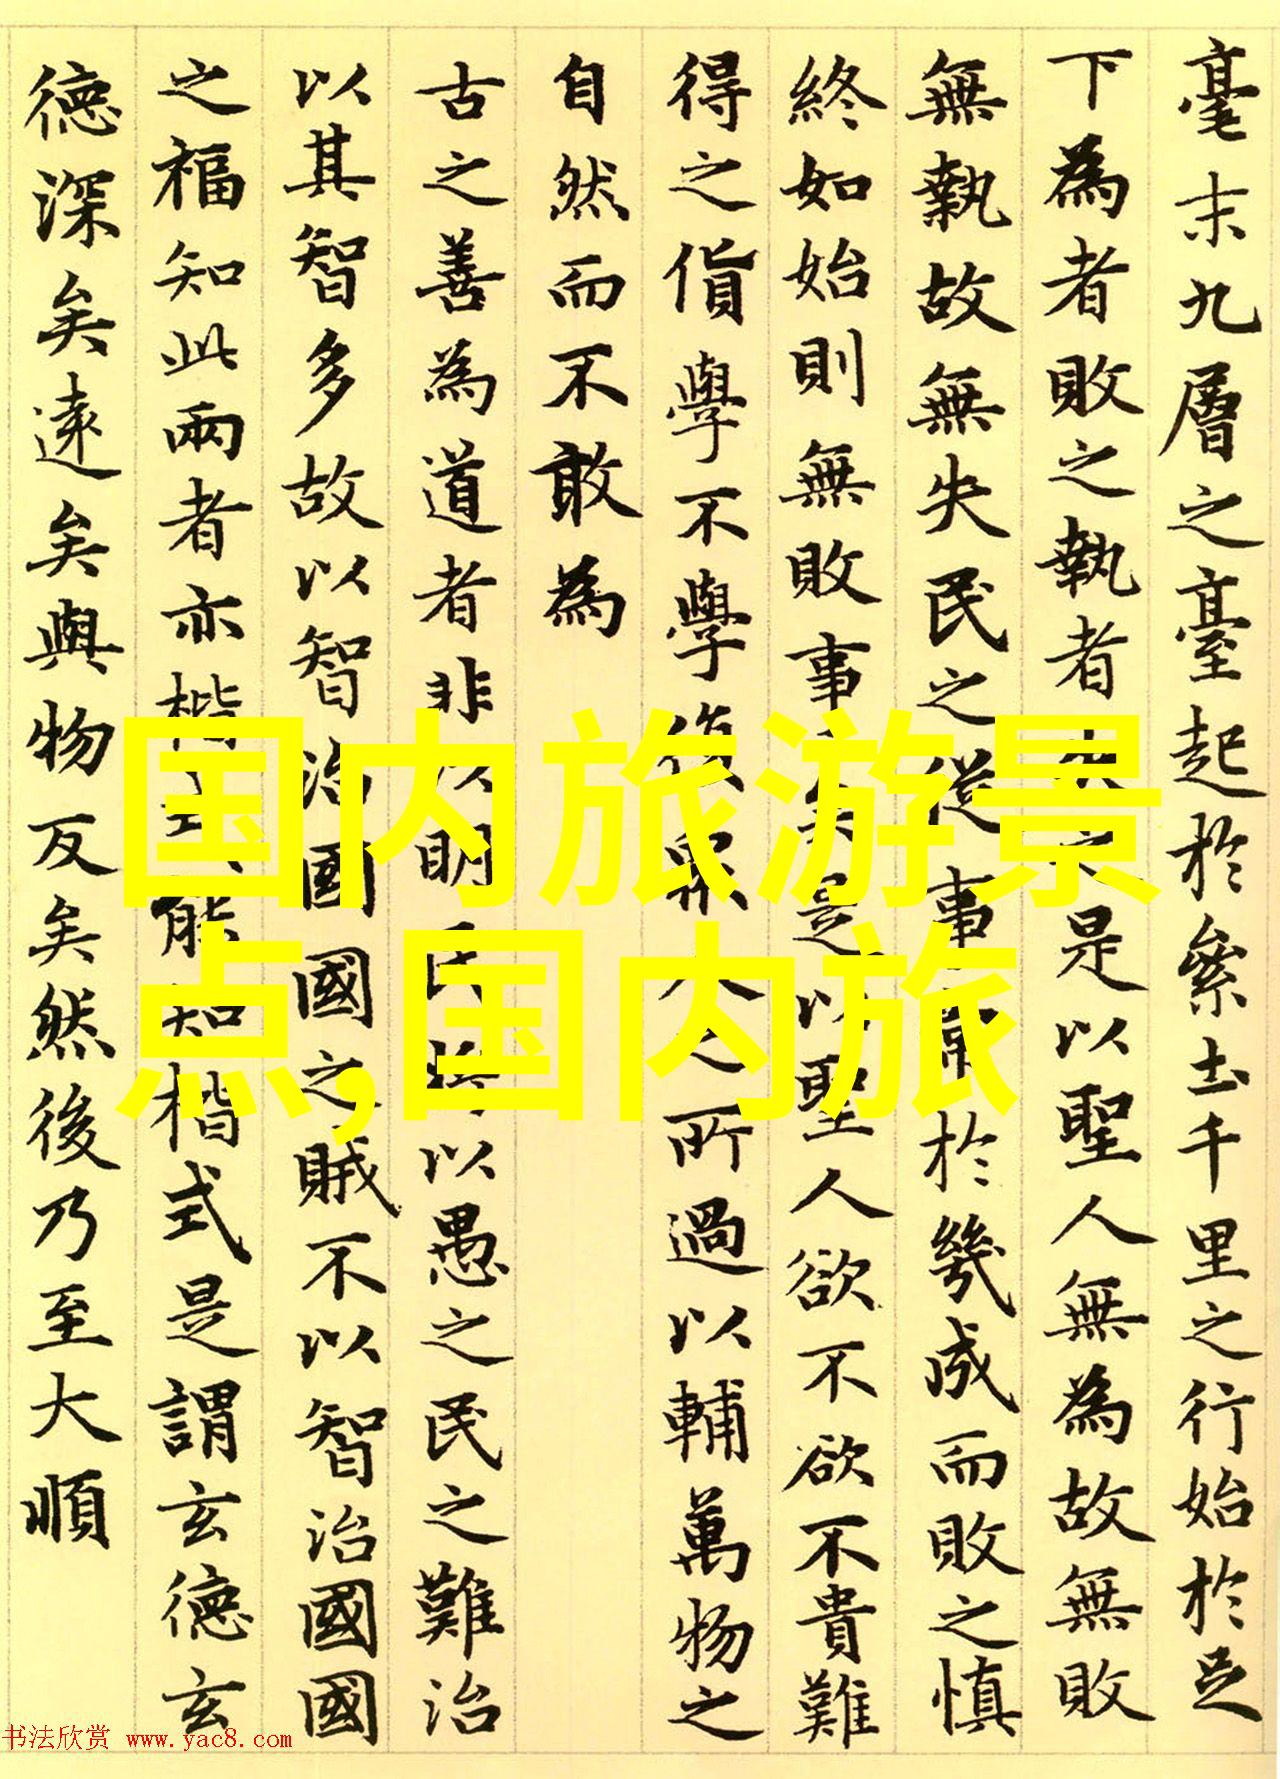 毫末九層之臺起於絫土千里之行始於足
下為者敗之執者失之是以聖人無為故無敗
無執故無失民之從事常於幾成而敗之慎
終如始則無敗事矣是以聖人欲不欲不貴難
得之貨學不學復眾人之所過以輔萬物之
自然而不敢為
古之善為道者非以明民將以愚之民之難治
以其智多故以智治國國之賊不以智治國國
之福知此兩者亦楷式能知楷式是謂玄德玄
德深矣遠矣與物反矣然後乃至大順
国内旅游景
点,国内旅
书法欣赏 www.yac8.com